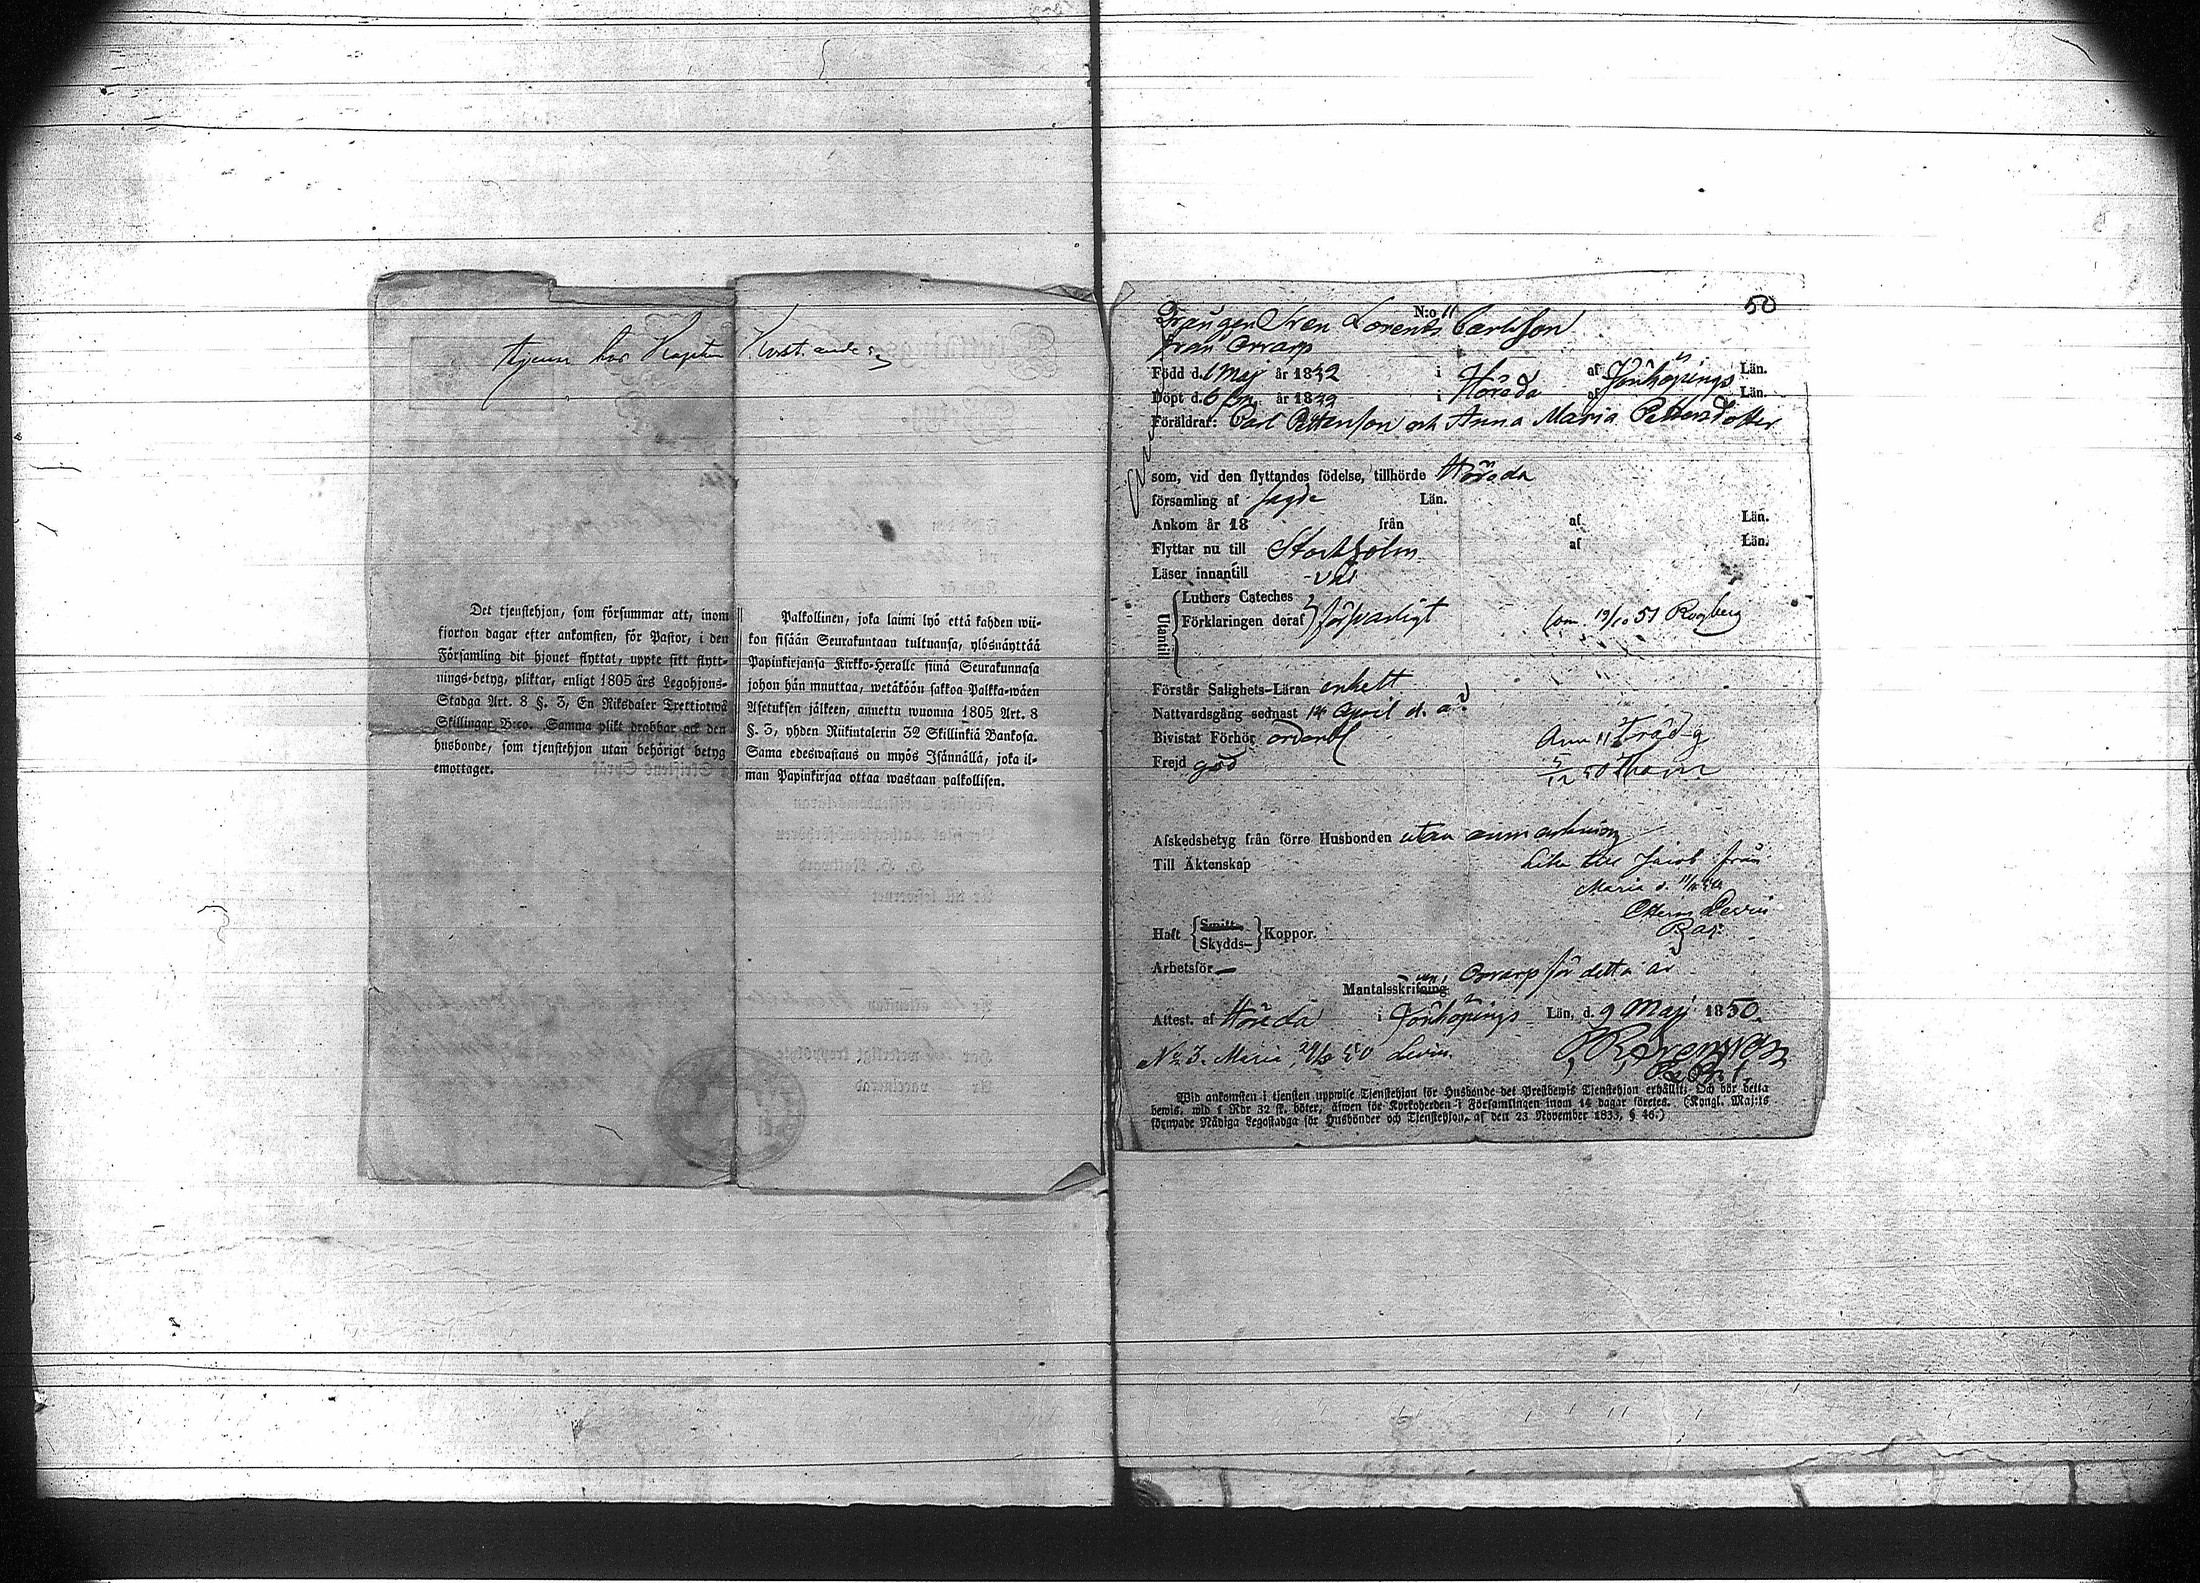 tjenar hos Kapten
Det tjenstehjon, som försummar att, inom
fjorton dagar efter ankomsten, för Pastor, i den
Församling dit hjonet flyttat, uppte sitt flytt-
nings-betyg, pliktar, enligt 1805 års Legohjons-
Stadga Art. 8 §. 3, En Riksdaler Trettiotwå
Skillingar B:co. Samma plikt drabbar ock den
husbonde, som tjenstehjon utan behörigt betyg
emottager.
Palkollinen, joka laimi lyö että kahden wii-
kon sisään Seurakuntaan tultuansa, ylösnäyttää
Papinkirjansa Kirkko-Heralle siinä Seurakunnasa
johon hän muuttaa, wetäköön sakkoa Palkka-wäen
Asetuksen jälkeen, annettu wuonna 1805 Art. 8
§. 3, yhden Riikintalerin 32 Skillinkiä Bankosa.
Sama edeswastaus on myös Isännällä, joka il-
man Papinkirjaa ottaa wastaan palkollisen.
50
N:o 11
Drängen Sven Lorents Carlsson
från Orrarp
Född d. 1 Maj år 1832 i Höreda af Jönköpings Län.
Döpt d. 6 år 18 i Höreda af Län.
Föräldrar: Carl Petterson och Anna Maria Pettersdotter
som, vid den flyttandes födelse, tillhörde Höreda
församling af sagde Län.
Ankom år 18 från af Län.
Flyttar nu till Stockholm af Län.
Läser innantill väl
Utantill
Luthers Cateches
Förklaringen deraf försvarligt
19/10 51 Rogberg
Förstår Salighets-Läran enkelt
Nattvardsgång sednast 14 April d. a.
Bivistat Förhör ordentl
Frejd god
Ann 11
50 Tham
Afskedsbetyg från förre Husbonden utan anmärkning
Till Äktenskap
Jacob från
Maria d.
Levin
Haft Smitt- Skydds- Koppor.
Arbetsför
Mantalsskrifven i Orrarp för detta år
Attest. af Höreda i Jönköpings Län, d. 9 Maj 1850.
No 3. Maria 50 Levin
Wid ankomsten i tjensten uppwise Tjenstehjon för Husbonde det Prestbewis Tjenstehjon erhållit; Och bör detta
bewis, wid 1 Rdr 32 sk. böter, äfwen för Kyrkoherden i Församlingen inom 14 dagar företes. (Kongl. Maj:ts
förnyade Nådiga Legostadga för Husbönder och Tjenstehjon, af den 23 November 1833, § 46.)